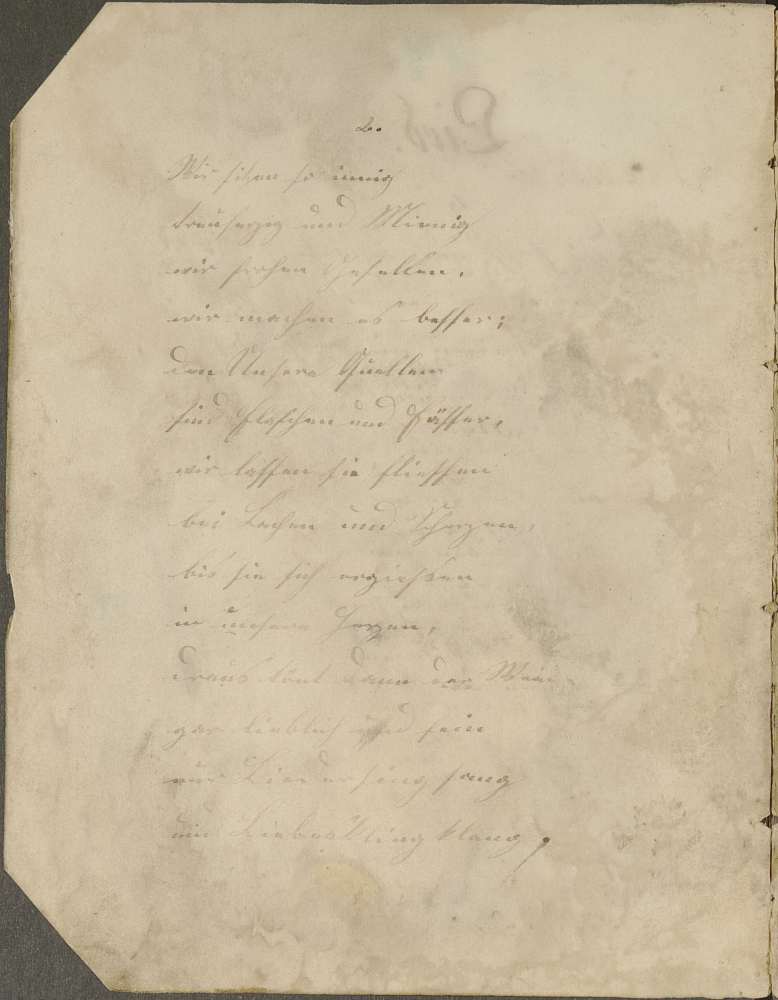 2.
Wir sitzen so innig
treuherzig und Minnig
wir frohen Gesellen,
wir machen es besser;
den Unsere Quellen
sind Flaschen und Fässer,
wir lassen sie fliessen
bei Lachen und Scherzen,
bis sie sich ergiessen
in unsere Herzen,
draus tönt dann der Wein
gar lieblich und fein
nur Liedersing sang
und Liebeskling klang.
Lied.